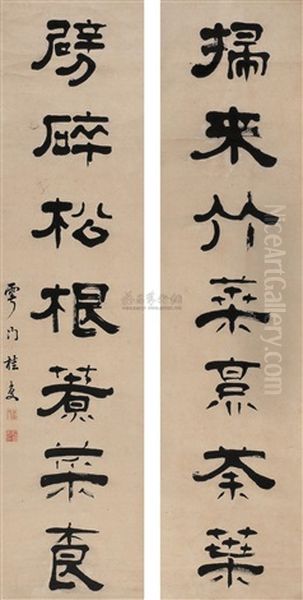 掃來竹葉烹茶葉
劈碎松根煮菜根
雩門桂复
NiceArtGallery.com